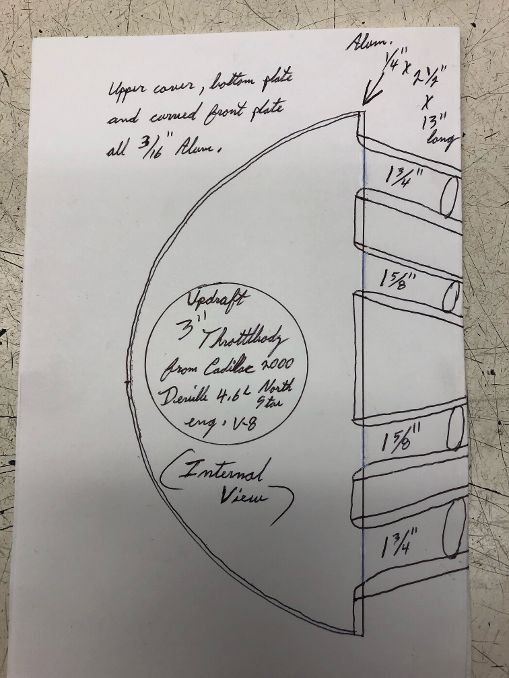 Upper cover, bottom plate
and curved front plate
all 3/16" Alum.
Alum.
1/4" x 2 1/2"
x
13"
long
1 3/4"
1 5/8"
1 5/8"
1 3/4"
Updraft
3"
Throttlbody
from Cadillac 2000
Deville 4.6L North
Star
eng. V-8
(Internal
View)